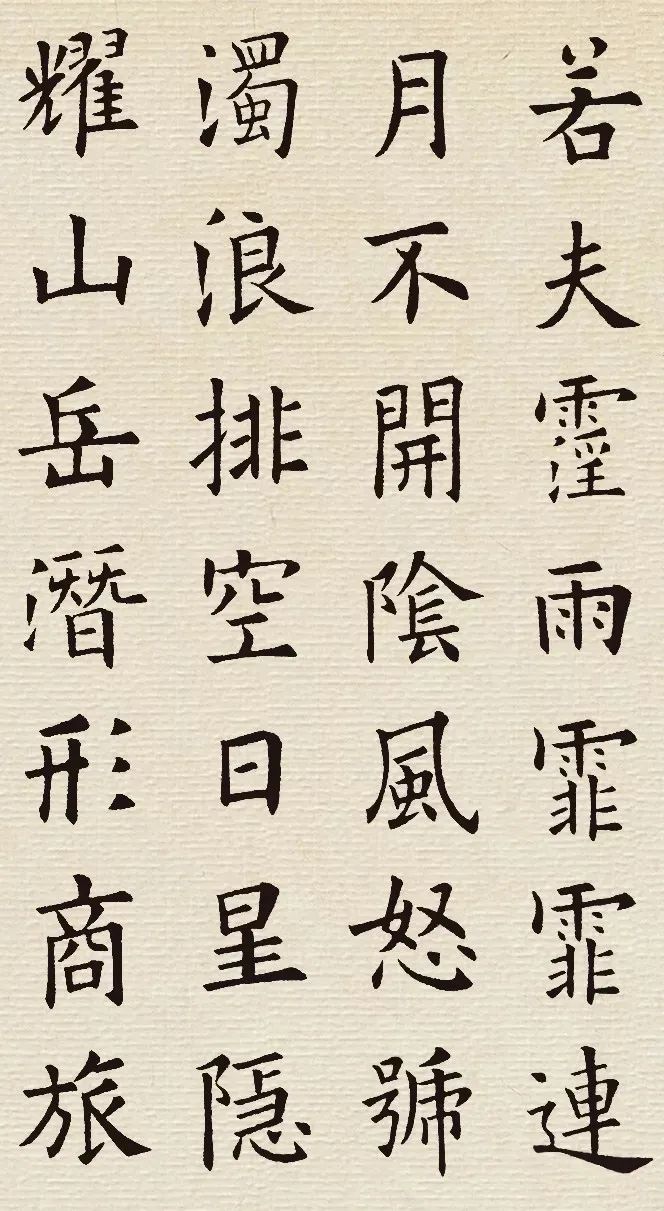 若夫霪雨霏霏連
月不開陰風怒號
濁浪排空日星隱
耀山岳潛形商旅